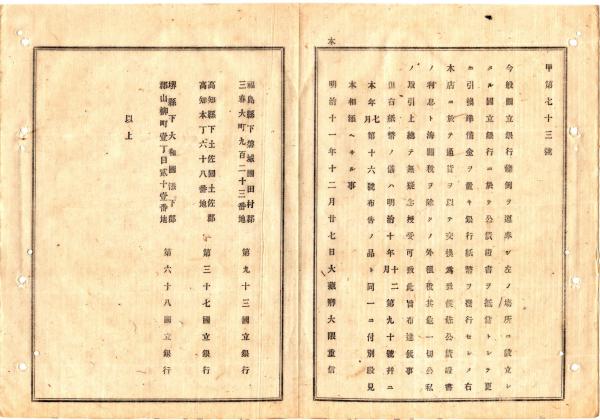 本
甲第七十三號
今般國立銀行條例ヲ遵奉シ左ノ場所ニ設立シ
タル國立銀行ニ於テ公債證書ヲ抵當トシテ更
ニ引換準備金ヲ置キ銀行紙幣ヲ發行セシメ右
本店ニ於テ通貨ヲ以テ交換爲致候條公債證書
ノ利息ト海關稅ヲ除クノ外租稅其他一切公私
ノ取引上總テ無疑念授受可致此旨布達候事
但右紙幣ノ儀ハ明治十年十二月第九十號幷ニ
本年七月第十六號布告ノ品ト同一ニ付別段見
本相添ヘサル事
明治十一年十二月廿七日大藏卿大隈重信
福島縣下磐城國田村郡
三春大町九百二十三番地
第九十三國立銀行
高知縣下土佐國土佐郡
高知本丁六十八番地
第三十七國立銀行
堺縣下大和國添下郡
郡山柳町壹丁目貳十壹番地
第六十八國立銀行
以上